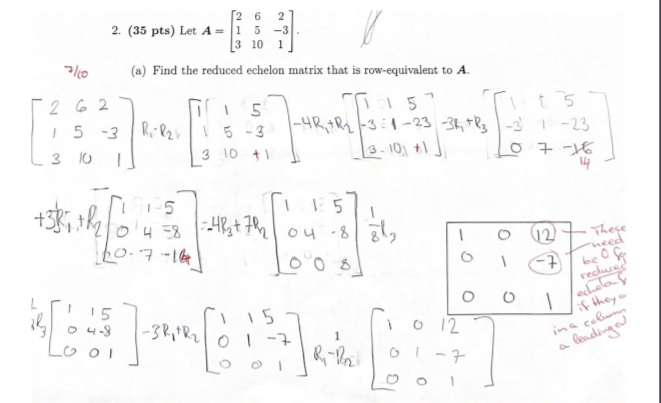 2. (35 pts) Let A = [2 6 2; 1 5 -3; 3 10 1].
7/10
(a) Find the reduced echelon matrix that is row-equivalent to A.
[2 6 2; 1 5 -3; 3 10 1] R₁-R₂ [1 1 5; 1 5 -3; 3 10 +1] -4R₁+R₂ [1 1 5; -3 1 -23; 3 10 +1] -3R₁+R₃ [1 1 5; -3 1 -23; 0 7 14]
+3R₁+R₂ [1 1 5; 0 4 -8; 0 7 -14] -4R₃+7R₂ [1 1 5; 0 4 -8; 0 0 8] 1/8 R₃
1 0 12
0 1 -7
0 0 1
These
need
be 0 for
reduced
echelon
if they
in a column
a leading
R₃ [1 1 5; 0 4 -8; 0 0 1] -3R₁+R₂ [1 1 5; 0 1 -7; 0 0 1] R₁-R₂ [1 0 12; 0 1 -7; 0 0 1]